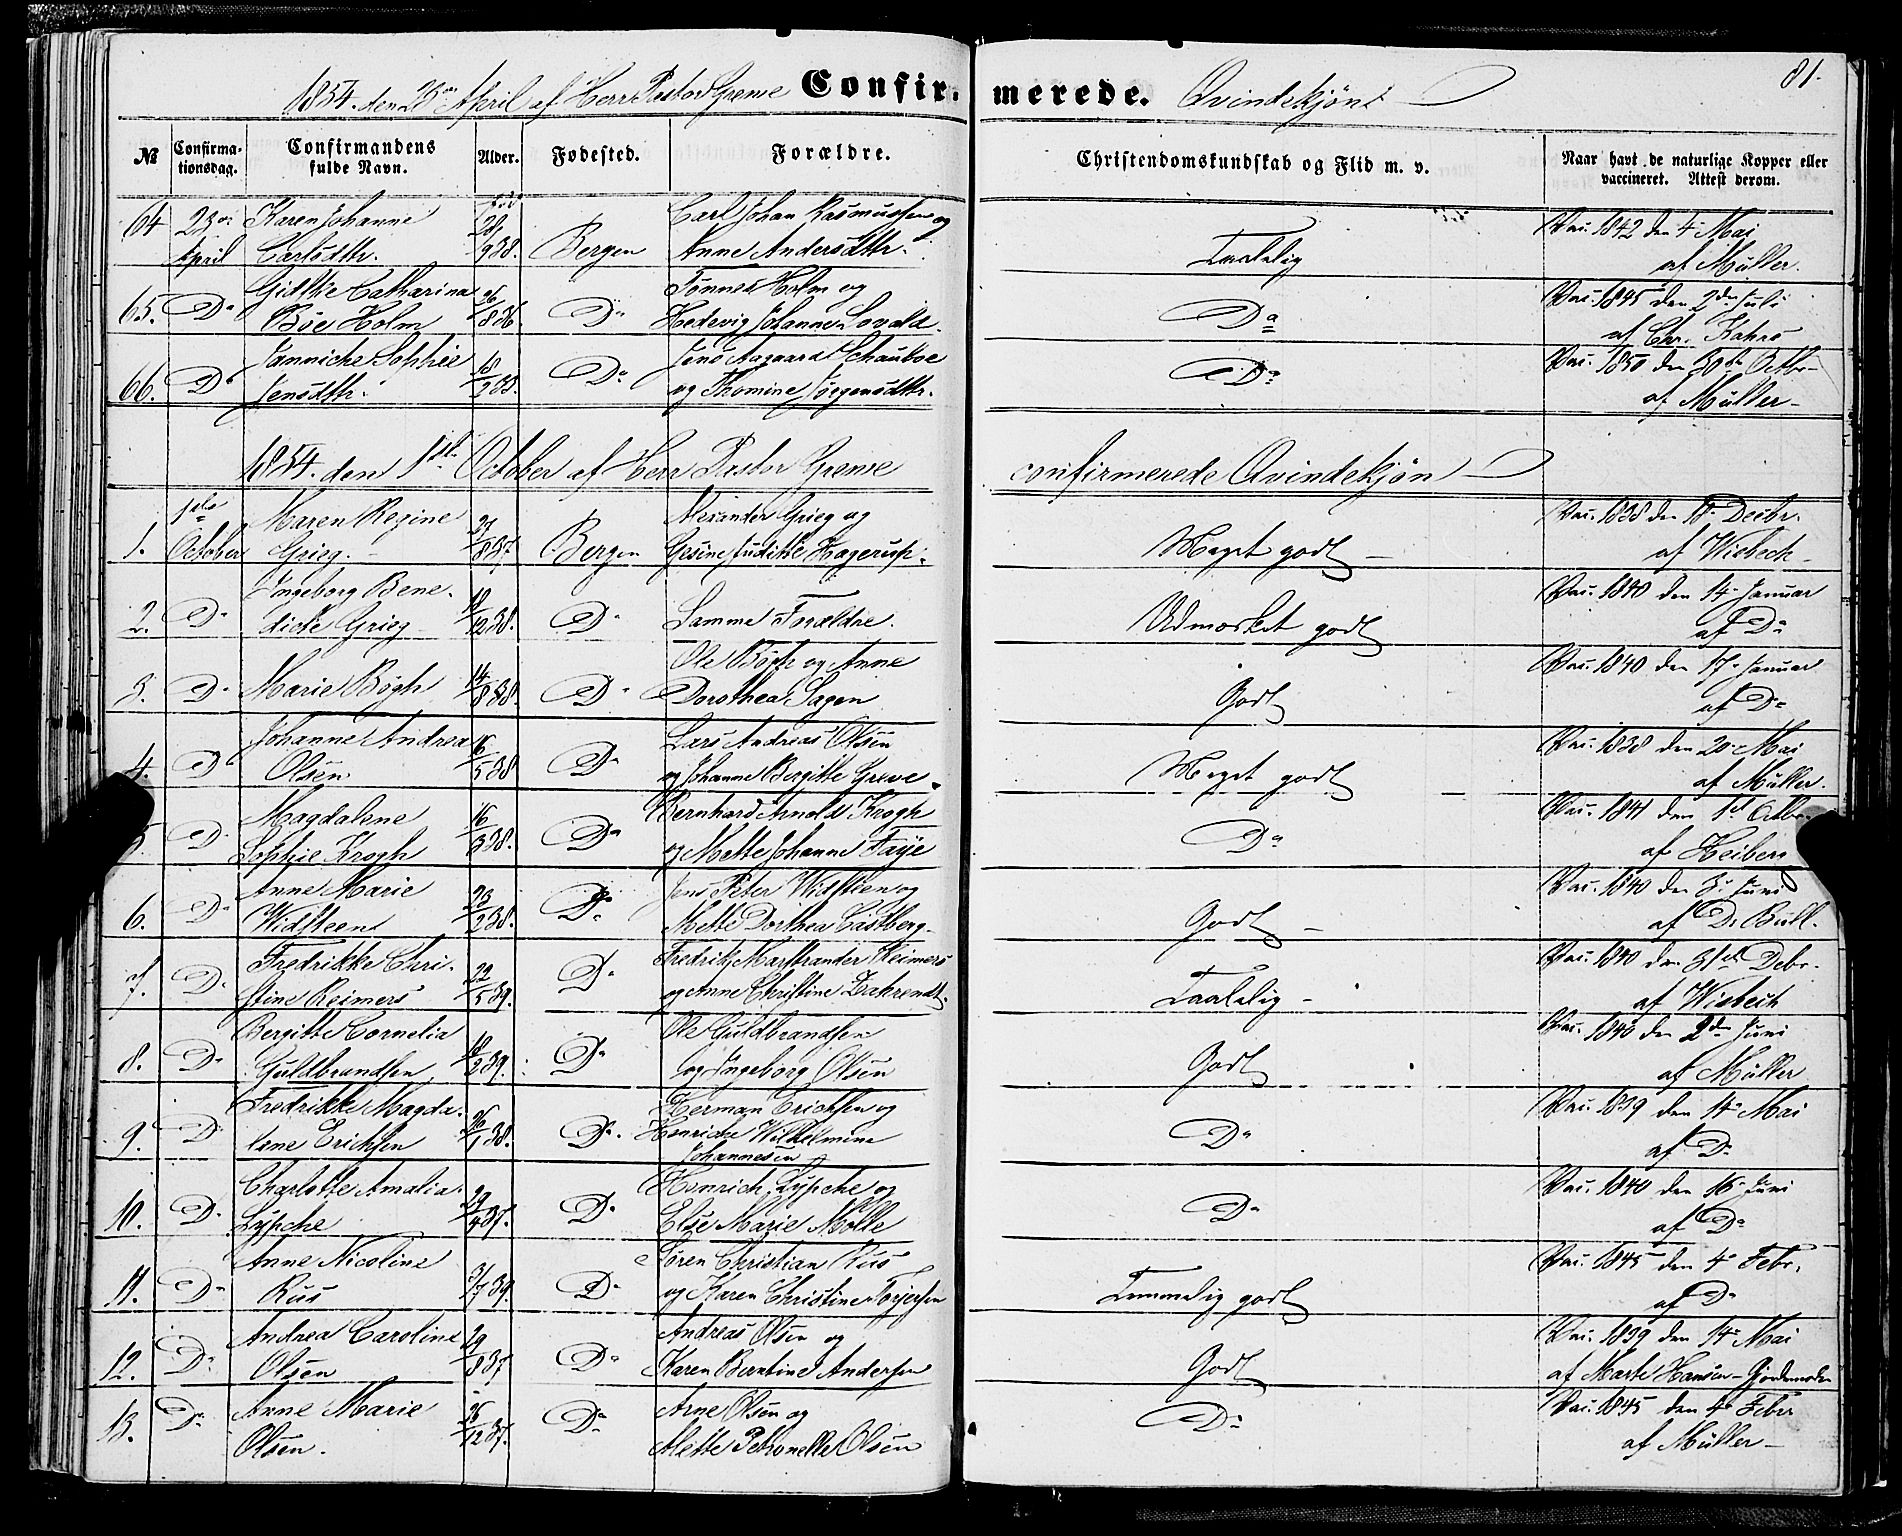 81.
1854. den 23de April af Herr Pastor Greve Confirmerede. Qvindekjøn
№ Confirmationsdag. Confirmandens fulde Navn. Alder. Fødested. Forældre. Christendomskundskab og Flid m. v. Naar havt de naturlige Kopper eller vaccineret. Attest derom.
64 23de Karen Johanne Carl Johan Rasmussen og Vac. 1842 den 4. Mai
April Carlsdttr. 9 38. Bergen Anne Andersdttr. Taalelig af Müller.
65. Do Gidske Catharina 26 Do Tønnes Holm og Do Vac. 1845 den 2den Juli
Bøe Holm 8 36. Hedevig Johanne af Chr. Kahrs
66. Do Jannicke Sophie 18 Do Jens Aagaard Do Vac. 1850 den 30te Octbr
Jensdttr. 2 38. og Thomine Jørgensdttr. af Müller
1854. den 1ste October af Herr Pastor Greve confirmerede Qvindekjøn
1. 1ste October Maren Regine 27 Bergen Alexander Grieg og Meget godt Vac. 1838 den 18 Decbr.
Grieg. 8 37. Gesine Judithe Hagerup. af Wisbech
2. Do Ingeborg Bene- Do Samme Forældre. Udmærket godt Vac. 1840 den 14. Januar
dicte Grieg 12 38. af Do
3. Do Marie Bøgh 14 Do Ole Bøgh og Anne Godt Vac. 1840 den 17. Januar
8 38. Dorothea Sagen af Do
4. Do Johanne Andrea 16 Do Lars Andreas Olsen Meget godt Vac. 1838 den 20. Mai
Olsen 5 38 og Johanne Bergitte Greve af Müller.
Do Magdalene 16 Do Bernhard Arnold Krogh Do Vac. 1841 den 1st Octbr.
Sophie Krogh 3 38. og Mette Johanne Faye af Heiberg
6. Do Anne Marie 23 Do Jens Peter Widsteen og Godt Vac. 1840 den 3. Juni
Widsteen 2 38. Mette Dorthea Castberg af Dr Bull.
7. Do Fredrikke Chri- 22 Do Fredrik Marstrander Reimers Taalelig Vac. 1840 den 31st Debr.
stine Reimers 5 39. og Anne Christine af Wisbech
8. Do Bergitte Cornelia Do Ole Guldbrandsen Godt Vac. 1840 den 2den Juni
Guldbrandsen 39. og Ingeborg Olsen af Müller
9. Do Fredrikke Magda- 26 Do Herman Erichsen og Do Vac. 1839 den 14. Mai
lene Erichsen 1 38. Henricke Wilhelmine af Do
Johannesen
10. Do Charlotte Amalia Do Henrich Lypche og Do Vac. 1840 den 16. Juni
Lypche 4 37. Else Marie Mølle af Do
11. Do Anne Nicoline 3 Do Søren Christian Rus Temmelig godt Vac. 1845 den 4. Febr.
Rus 7 39. og Karen Christine Torjersen af Do
12. Do Andrea Caroline 29 Do Andreas Olsen og Godt Vac. 1839 den 14. Mai
Olsen 8 37 Karen Berntine Andersen af Marte Hansen
13. Do Anne Marie 26 Do Arne Olsen og Do Vac. 1845 den 4. Febr
Olsen. 12 37. Mette Petronelle Olsen af Müller